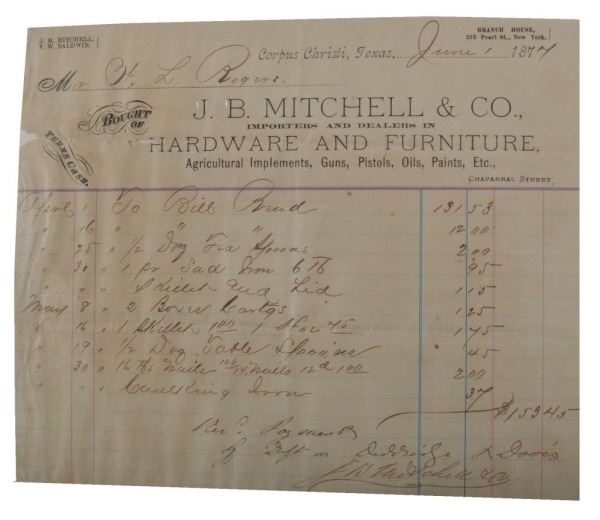 J. B. MITCHELL,
V. W. BALDWIN.
BRANCH HOUSE,
218 Pearl St., New York.
Corpus Christi, Texas, June 1 1877
Mr F. L. Rogers.
BOUGHT OF
J. B. MITCHELL & CO.,
IMPORTERS AND DEALERS IN
TERMS CASH.
HARDWARE AND FURNITURE,
Agricultural Implements, Guns, Pistols, Oils, Paints, Etc.,
CHAPARRAL STREET
April 1 To Bill Rend 131 53
" 16 " " " 12 00
" 25 " 1/2 Doz Tea Spoons 2 00
" 30 " 1 pr Sad Iron 6 lb 95
" " " Skillet and Lid 1 15
May 8 " 2 Boxes Cartgs 1 25
" 16 " 1 Skillet 1 00 1 75
" 19 " 1/2 Doz Table Spoons 45
" 30 " 16 lbs Nails 100 Nails 12d 100 2 00
" " " Caulking Iron 37
$153 45
Rec Payment
by Dft on Diddridge & Davis
J B Mitchell & Co